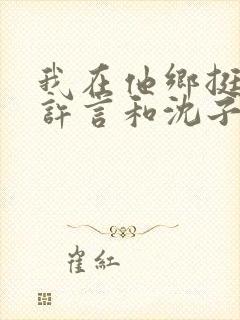 我在他鄉挺
許言和沈子
崔紅